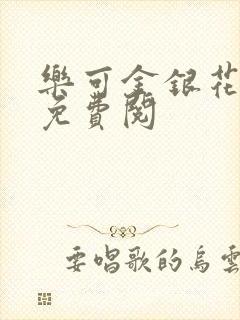 樂可金銀花
免費閱
要唱歌的烏雲